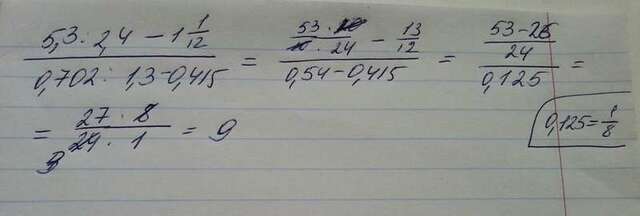 (5,3 : 2,4 − 1 1/12) / (0,702 : 1,3 − 0,415) = ((53 · 10)/(10 · 24) − 13/12) / (0,54 − 0,415) = ((53 − 26)/24) / 0,125 =
= (27 · 8)/(24 · 1) = 9
3
0,125 = 1/8